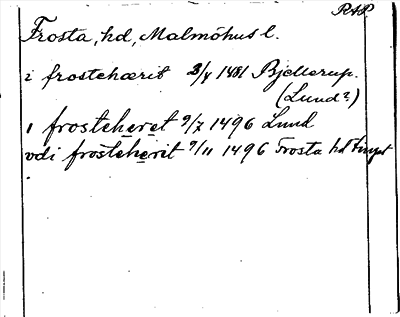 RAP
Frosta, hd, Malmöhus l.
i frosteherit 3/8 1481 Bjellerup.
(Lund?)
i frosteheret 9/7 1496 Lund
vdi frosteherit 9/11 1496 Frosta hd